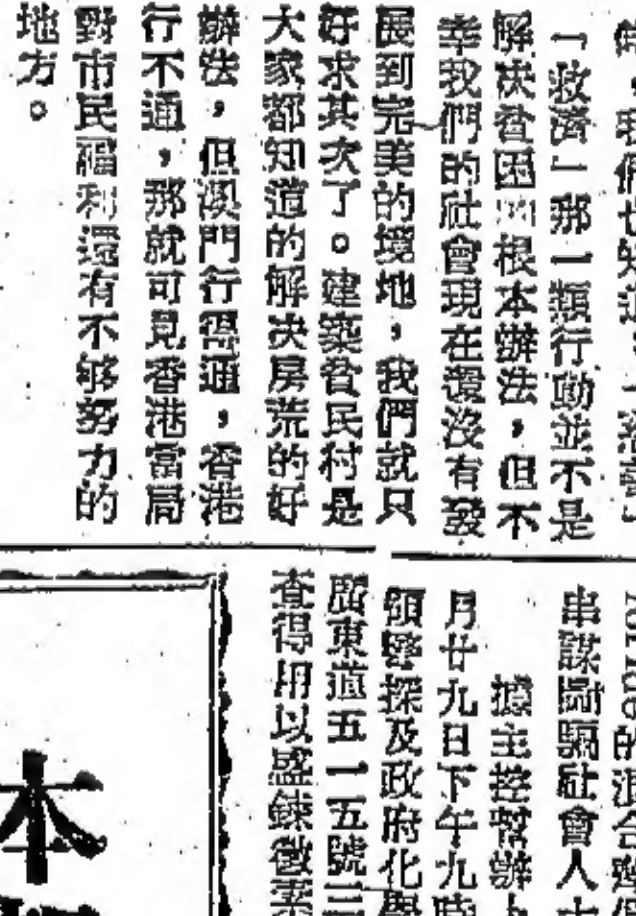 我們也知道，「慈善」
「救濟」那一類行動並不是
解決貧困的根本辦法，但不
幸我們的社會現在還沒有發
展到完美的境地，我們就只
好求其次了。建築貧民村是
大家都知道的解決房荒的好
辦法，但澳門行得通，香港
行不通，那就可見香港當局
對市民福利還有不够努力的
地方。
的混合
串謀圖騙社會人士
據主控幫辦
月廿九日下午九時
領警探及政府化學
廣東道五一五號三
查得用以盛鍊黴素
本